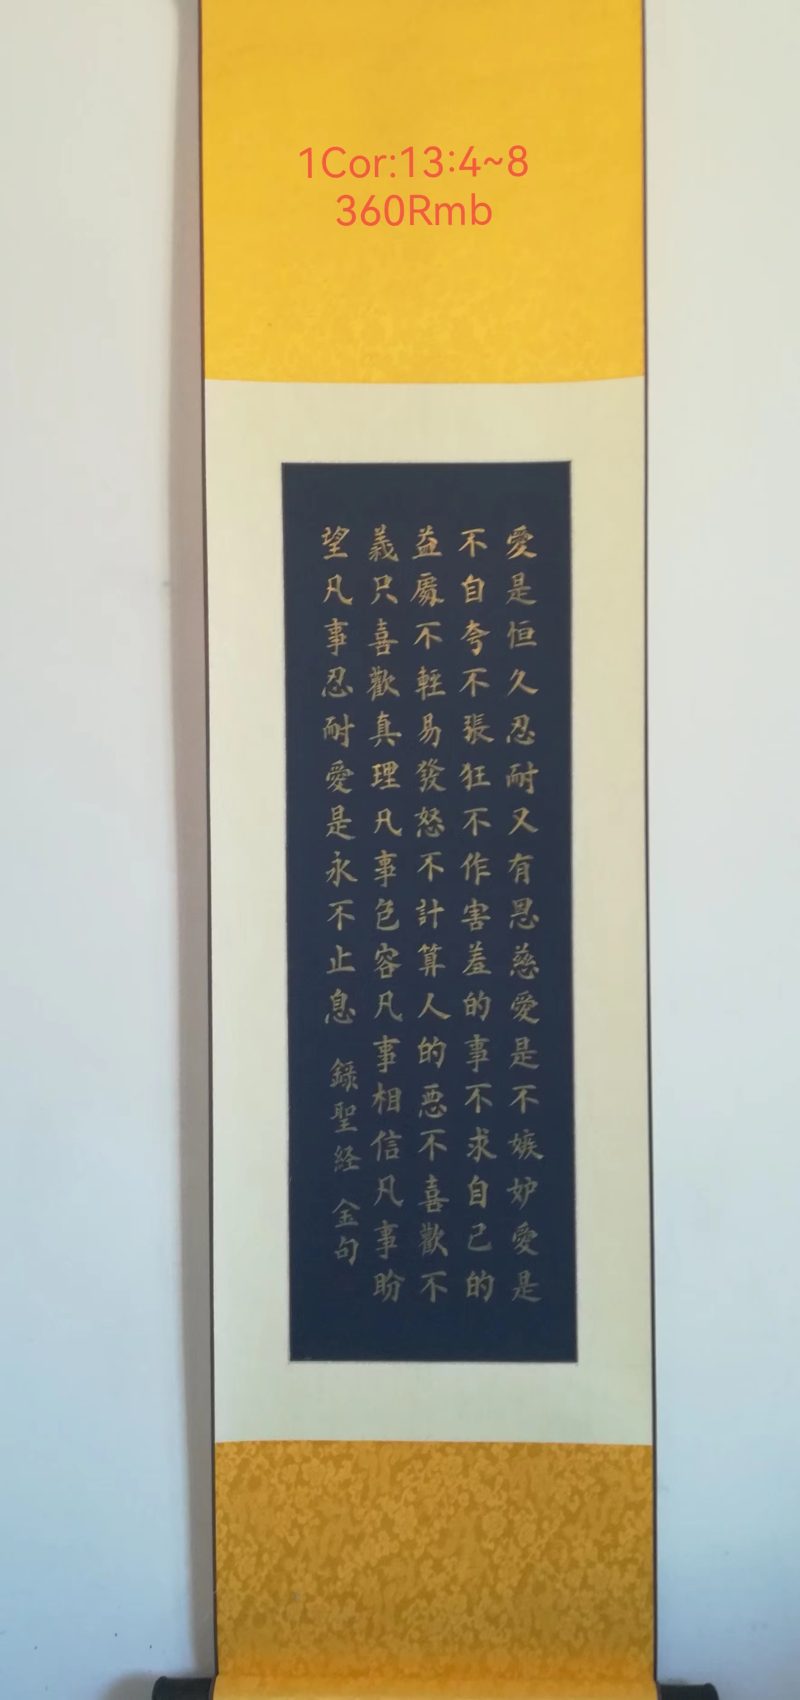 1Cor:13:4~8
360Rmb
愛是恒久忍耐又有恩慈愛是不嫉妒愛是
不自夸不張狂不作害羞的事不求自己的
益處不輕易發怒不計算人的惡不喜歡不
義只喜歡真理凡事包容凡事相信凡事盼
望凡事忍耐愛是永不止息 錄聖経 金句